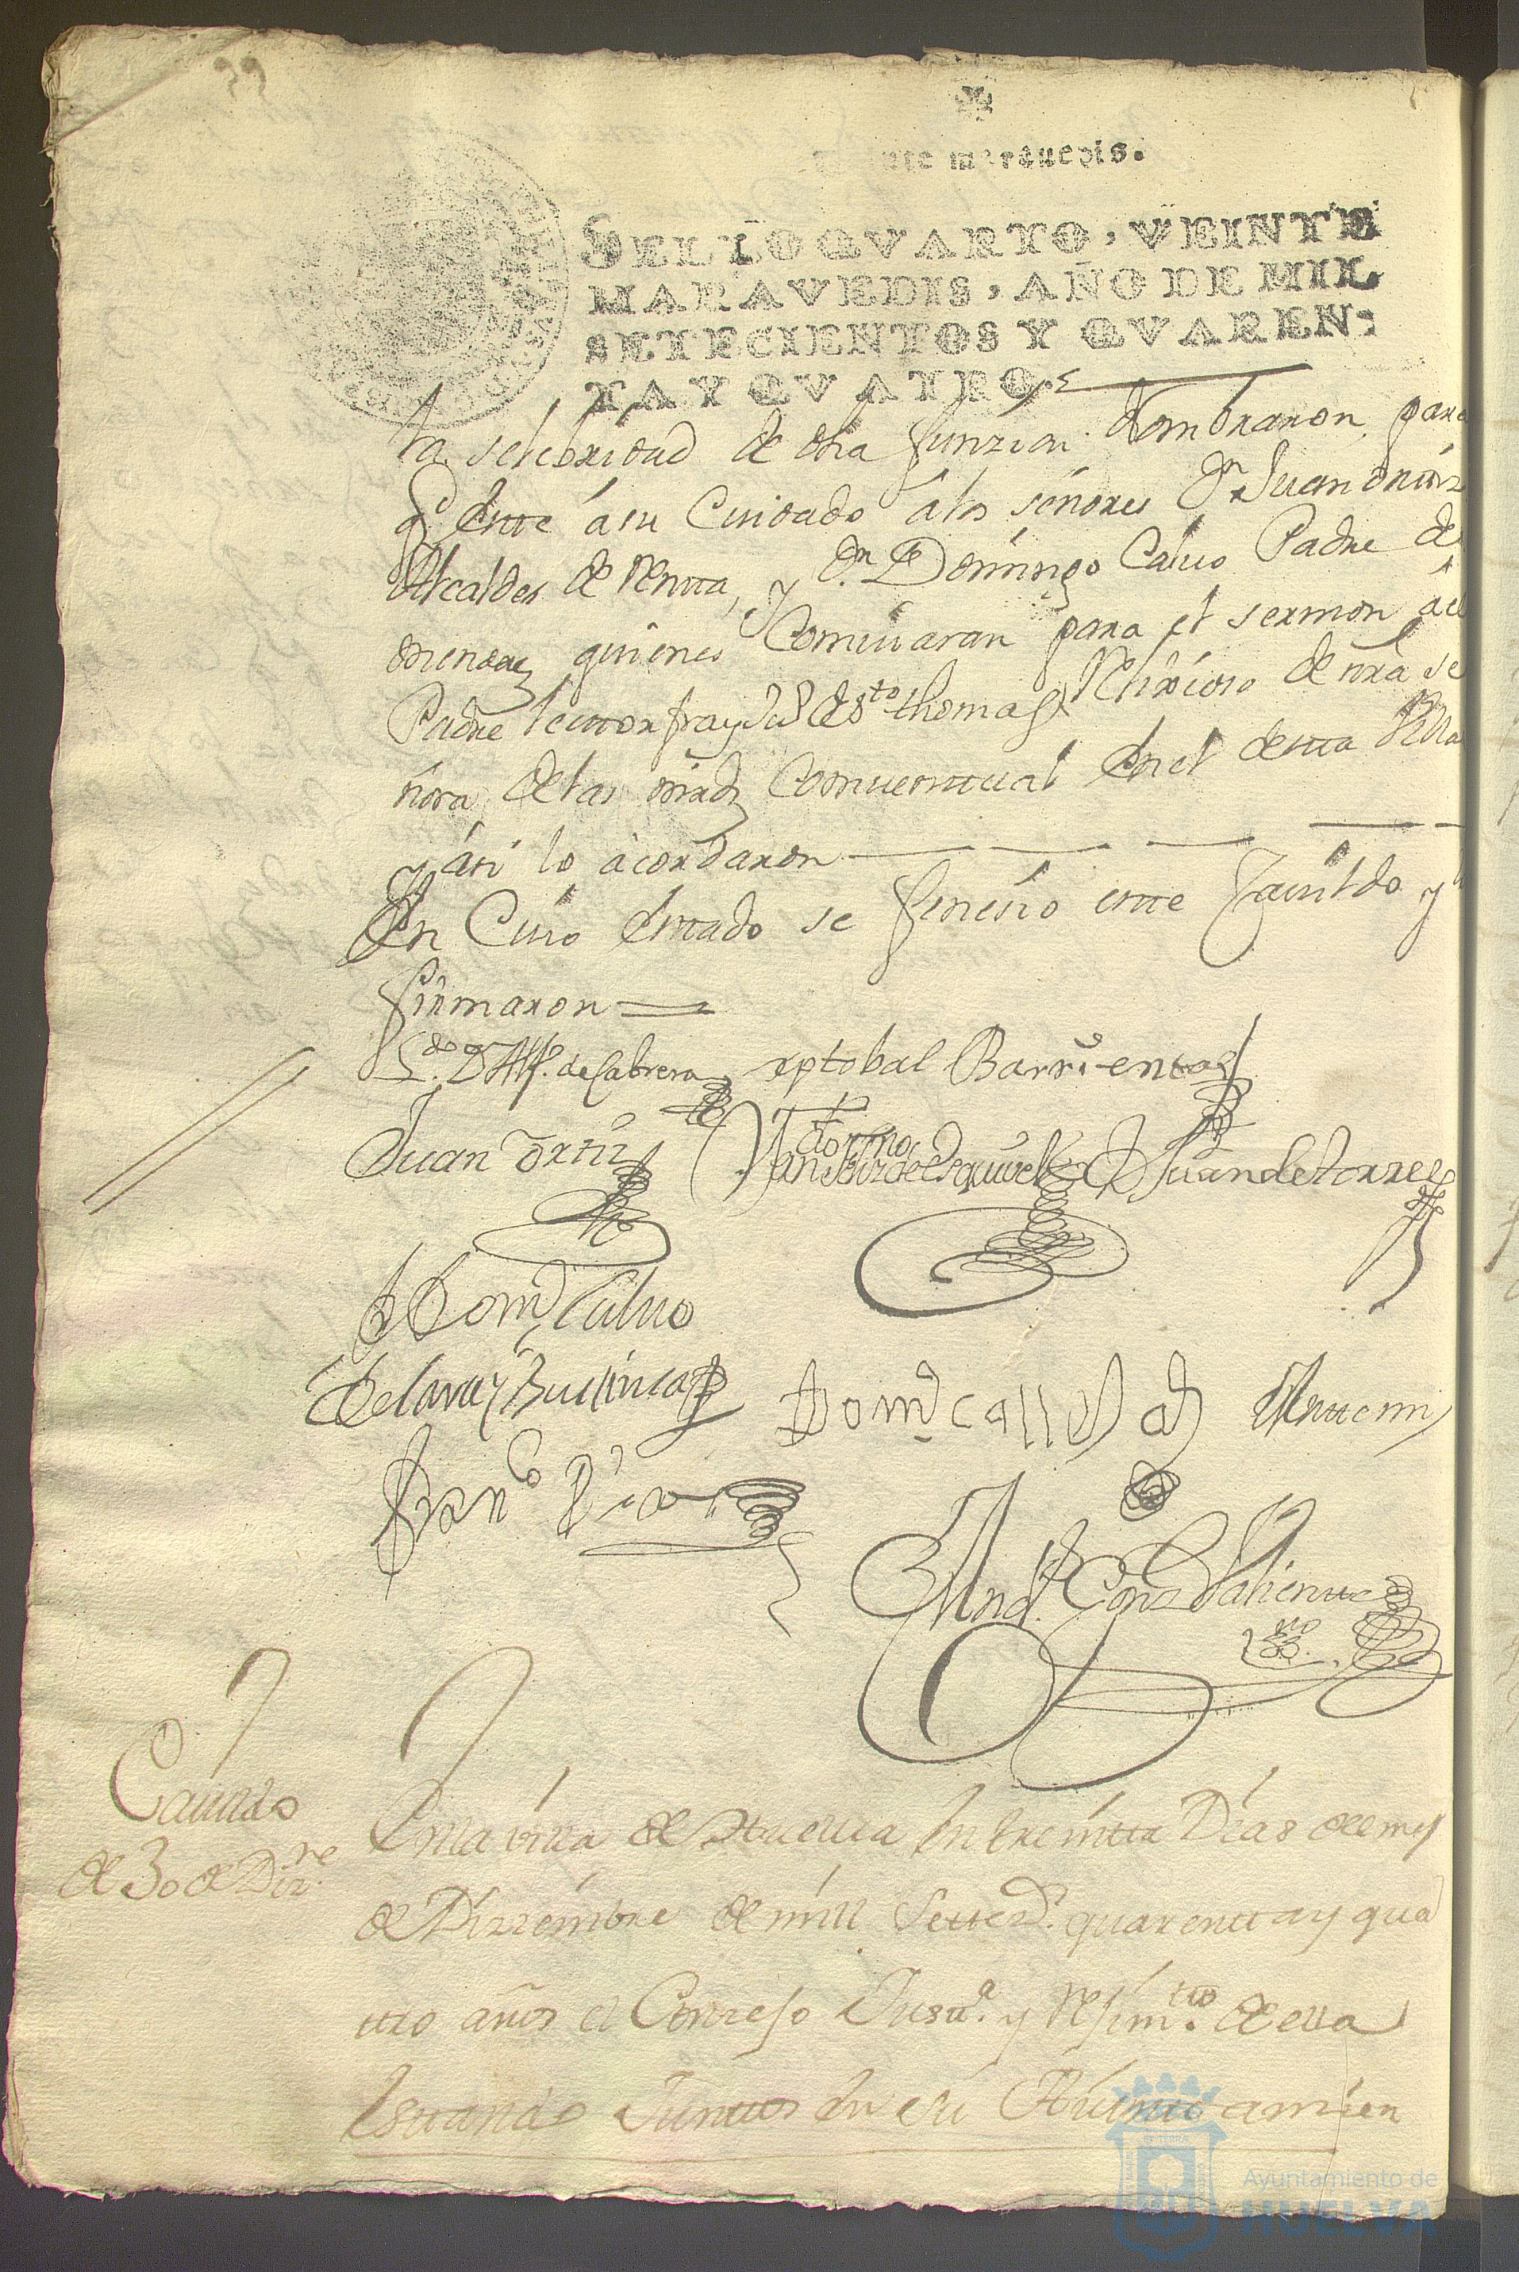 maravedis.
SELLO QVARTO, VEINTE
MARAVEDIS, AÑO DE MIL
SETECIENTOS Y QVAREN-
TA Y QVATRO.
la selebridad de dha funzion Nombraron para
q.e este â su Cuidado â los señores D.n Juan ortiz
Alcaldes de Renta, y D.n Domingo Calvo Padre de
menores quienes Comvidaran para el sermon al
Padre lector fray Ju.º de S.to thomas Relixioso de nra se
ñora de las mrds Comventual en el de esta Villa
y ási lo ácordaron
En Cuio estado se feneció este Cavildo y lo
firmaron
L.do D. Alf.º de Cabrera xptobal Barrientos
Juan ortiz D Juan de torres
D Dom.º Calvo
de lara y Buitrico Dom.º calle Ante mi
Fran.co Diaz
And.s Conz Valiente
ss.no
Cavildo
de 30 de Diz.re
En la villa de Huelva en treintta Dias del mes
de Dizziembre de mill Settez.s quarentta y qua
ttro años el Conzejo Justt.a y Rejim.tto de ella
esttando Junttos en su Aiunttamien
Ayuntamiento de
HUELVA